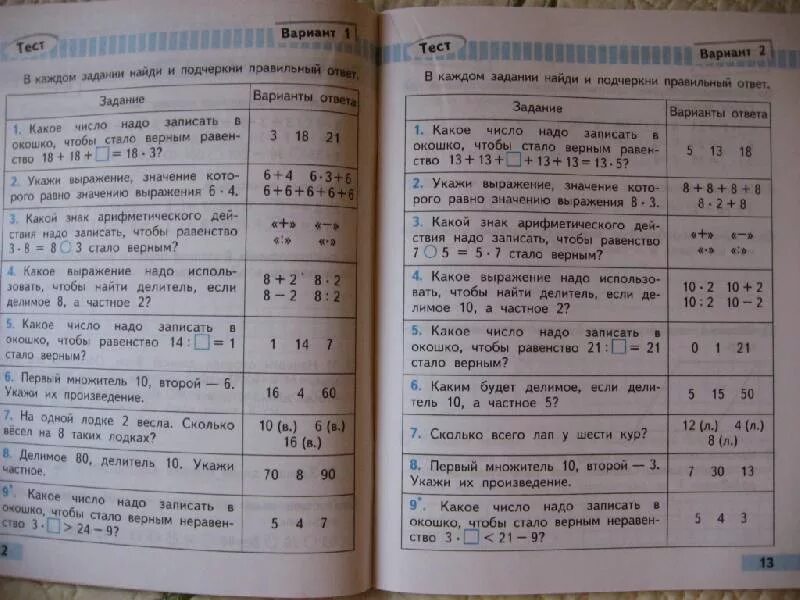 Тест
Вариант 1
В каждом задании найди и подчеркни правильный ответ.
Задание
Варианты ответа
1. Какое число надо записать в
окошко, чтобы стало верным равен-
ство 18 + 18 + □ = 18 · 3?
3 18 21
2. Укажи выражение, значение кото-
рого равно значению выражения 6 · 4.
6 + 4 6 · 3 + 6
6 + 6 + 6 + 6 + 6
3. Какой знак арифметического дей-
ствия надо записать, чтобы равенство
3 · 8 = 8 ○ 3 стало верным?
«+» «−»
«:» «·»
4. Какое выражение надо исполь-
зовать, чтобы найти делитель, если
делимое 8, а частное 2?
8 + 2 8 · 2
8 − 2 8 : 2
5. Какое число надо записать в
окошко, чтобы равенство 14 : □ = 1
стало верным?
1 14 7
6. Первый множитель 10, второй — 6.
Укажи их произведение.
16 4 60
7. На одной лодке 2 весла. Сколько
вёсел на 8 таких лодках?
10 (в.) 6 (в.)
16 (в.)
8. Делимое 80, делитель 10. Укажи
частное.
70 8 90
9*. Какое число надо записать в
окошко, чтобы стало верным неравен-
ство 3 · □ > 24 − 9?
5 4 7
2
Тест
Вариант 2
В каждом задании найди и подчеркни правильный ответ.
Задание
Варианты ответа
1. Какое число надо записать в
окошко, чтобы стало верным равен-
ство 13 + 13 + □ + 13 + 13 = 13 · 5?
5 13 18
2. Укажи выражение, значение кото-
рого равно значению выражения 8 · 3.
8 + 8 + 8 + 8
8 · 2 + 8
3. Какой знак арифметического дей-
ствия надо записать, чтобы равенство
7 ○ 5 = 5 · 7 стало верным?
«+» «−»
«·» «:»
4. Какое выражение надо использо-
вать, чтобы найти делитель, если де-
лимое 10, а частное 2?
10 · 2 10 + 2
10 : 2 10 − 2
5. Какое число надо записать в
окошко, чтобы равенство 21 : □ = 21
стало верным?
0 1 21
6. Каким будет делимое, если дели-
тель 10, а частное 5?
5 15 50
7. Сколько всего лап у шести кур?
12 (л.) 4 (л.)
8 (л.)
8. Первый множитель 10, второй — 3.
Укажи их произведение.
7 30 13
9*. Какое число надо записать в
окошко, чтобы стало верным неравен-
ство 3 · □ < 21 − 9?
5 4 3
13